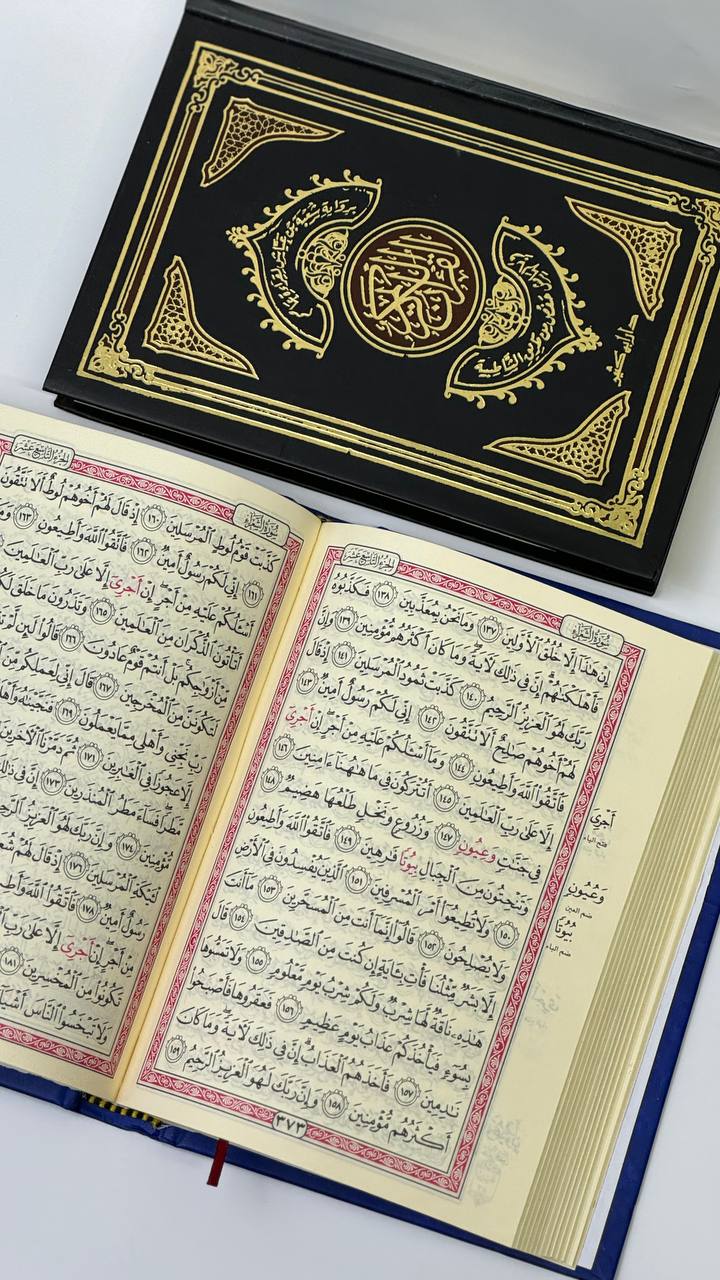 القرآن الكريم
برواية شعبة عن عاصم
من طريق الشاطبية
دار ابن كثير
سُورَةُ الشُّعَرَاءِ
الجُزْءُ التَّاسِعَ عَشَرَ
إِنْ هَٰذَآ إِلَّا خُلُقُ ٱلْأَوَّلِينَ ١٣٧ وَمَا نَحْنُ بِمُعَذَّبِينَ ١٣٨ فَكَذَّبُوهُ
فَأَهْلَكْنَٰهُمْ إِنَّ فِى ذَٰلِكَ لَءَايَةً وَمَا كَانَ أَكْثَرُهُم مُّؤْمِنِينَ ١٣٩ وَإِنَّ
رَبَّكَ لَهُوَ ٱلْعَزِيزُ ٱلرَّحِيمُ ١٤٠ كَذَّبَتْ ثَمُودُ ٱلْمُرْسَلِينَ ١٤١ إِذْ قَالَ
لَهُمْ أَخُوهُمْ صَٰلِحٌ أَلَا تَتَّقُونَ ١٤٢ إِنِّى لَكُمْ رَسُولٌ أَمِينٌ ١٤٣
فَٱتَّقُوا۟ ٱللَّهَ وَأَطِيعُونِ ١٤٤ وَمَآ أَسْـَٔلُكُمْ عَلَيْهِ مِنْ أَجْرٍ إِنْ أَجْرِىَ
إِلَّا عَلَىٰ رَبِّ ٱلْعَٰلَمِينَ ١٤٥ أَتُتْرَكُونَ فِى مَا هَٰهُنَآ ءَامِنِينَ ١٤٦
فِى جَنَّٰتٍ وَعِيُونٍ ١٤٧ وَزُرُوعٍ وَنَخْلٍ طَلْعُهَا هَضِيمٌ ١٤٨
وَتَنْحِتُونَ مِنَ ٱلْجِبَالِ بِيُوتًا فَٰرِهِينَ ١٤٩ فَٱتَّقُوا۟ ٱللَّهَ وَأَطِيعُونِ
١٥٠ وَلَا تُطِيعُوٓا۟ أَمْرَ ٱلْمُسْرِفِينَ ١٥١ ٱلَّذِينَ يُفْسِدُونَ فِى ٱلْأَرْضِ
وَلَا يُصْلِحُونَ ١٥٢ قَالُوٓا۟ إِنَّمَآ أَنتَ مِنَ ٱلْمُسَحَّرِينَ ١٥٣ مَآ أَنتَ
إِلَّا بَشَرٌ مِّثْلُنَا فَأْتِ بِـَٔايَةٍ إِن كُنتَ مِنَ ٱلصَّٰدِقِينَ ١٥٤ قَالَ
هَٰذِهِۦ نَاقَةٌ لَّهَا شِرْبٌ وَلَكُمْ شِرْبُ يَوْمٍ مَّعْلُومٍ ١٥٥ وَلَا تَمَسُّوهَا
بِسُوٓءٍ فَيَأْخُذَكُمْ عَذَابُ يَوْمٍ عَظِيمٍ ١٥٦ فَعَقَرُوهَا فَأَصْبَحُوا۟
نَٰدِمِينَ ١٥٧ فَأَخَذَهُمُ ٱلْعَذَابُ إِنَّ فِى ذَٰلِكَ لَءَايَةً وَمَا كَانَ
أَكْثَرُهُم مُّؤْمِنِينَ ١٥٨ وَإِنَّ رَبَّكَ لَهُوَ ٱلْعَزِيزُ ٱلرَّحِيمُ ١٥٩
٣٧٣
أَجْرِىَ
فتح الياء
وَعُيُونٍ
ضم العين
بُيُوتًا
ضم الباء
سُورَةُ الشُّعَرَاءِ
الجُزْءُ التَّاسِعَ عَشَرَ
كَذَّبَتْ قَوْمُ لُوطٍ ٱلْمُرْسَلِينَ ١٦٠ إِذْ قَالَ لَهُمْ أَخُوهُمْ لُوطٌ أَلَا تَتَّقُونَ
١٦١ إِنِّى لَكُمْ رَسُولٌ أَمِينٌ ١٦٢ فَٱتَّقُوا۟ ٱللَّهَ وَأَطِيعُونِ ١٦٣
أَسْـَٔلُكُمْ عَلَيْهِ مِنْ أَجْرٍ إِنْ أَجْرِىَ إِلَّا عَلَىٰ رَبِّ ٱلْعَٰلَمِينَ
أَتَأْتُونَ ٱلذُّكْرَانَ مِنَ ٱلْعَٰلَمِينَ ١٦٥ وَتَذَرُونَ مَا خَلَقَ
مِنْ أَزْوَٰجِكُم بَلْ أَنتُمْ قَوْمٌ عَادُونَ ١٦٦ قَالُوا۟ لَئِن لَّمْ
لَتَكُونَنَّ مِنَ ٱلْمُخْرَجِينَ ١٦٧ قَالَ إِنِّى لِعَمَلِكُم مِّنَ
رَبِّ نَجِّنِى وَأَهْلِى مِمَّا يَعْمَلُونَ ١٦٩ فَنَجَّيْنَٰهُ وَأَهْلَهُ
إِلَّا عَجُوزًا فِى ٱلْغَٰبِرِينَ ١٧١ ثُمَّ دَمَّرْنَا ٱلْءَاخَرِينَ
مَّطَرًا فَسَآءَ مَطَرُ ٱلْمُنذَرِينَ ١٧٣ إِنَّ فِى ذَٰلِكَ
مُّؤْمِنِينَ ١٧٤ وَإِنَّ رَبَّكَ لَهُوَ ٱلْعَزِيزُ
لْـَٔيْكَةِ ٱلْمُرْسَلِينَ ١٧٦ إِذْ قَالَ لَهُمْ
رَسُولٌ أَمِينٌ ١٧٨ فَٱتَّقُوا۟ ٱللَّهَ
مِنْ أَجْرٍ إِنْ أَجْرِىَ إِلَّا عَلَىٰ رَبِّ
تَكُونُوا۟ مِنَ ٱلْمُخْسِرِينَ ١٨١
وَلَا تَبْخَسُوا۟ ٱلنَّاسَ